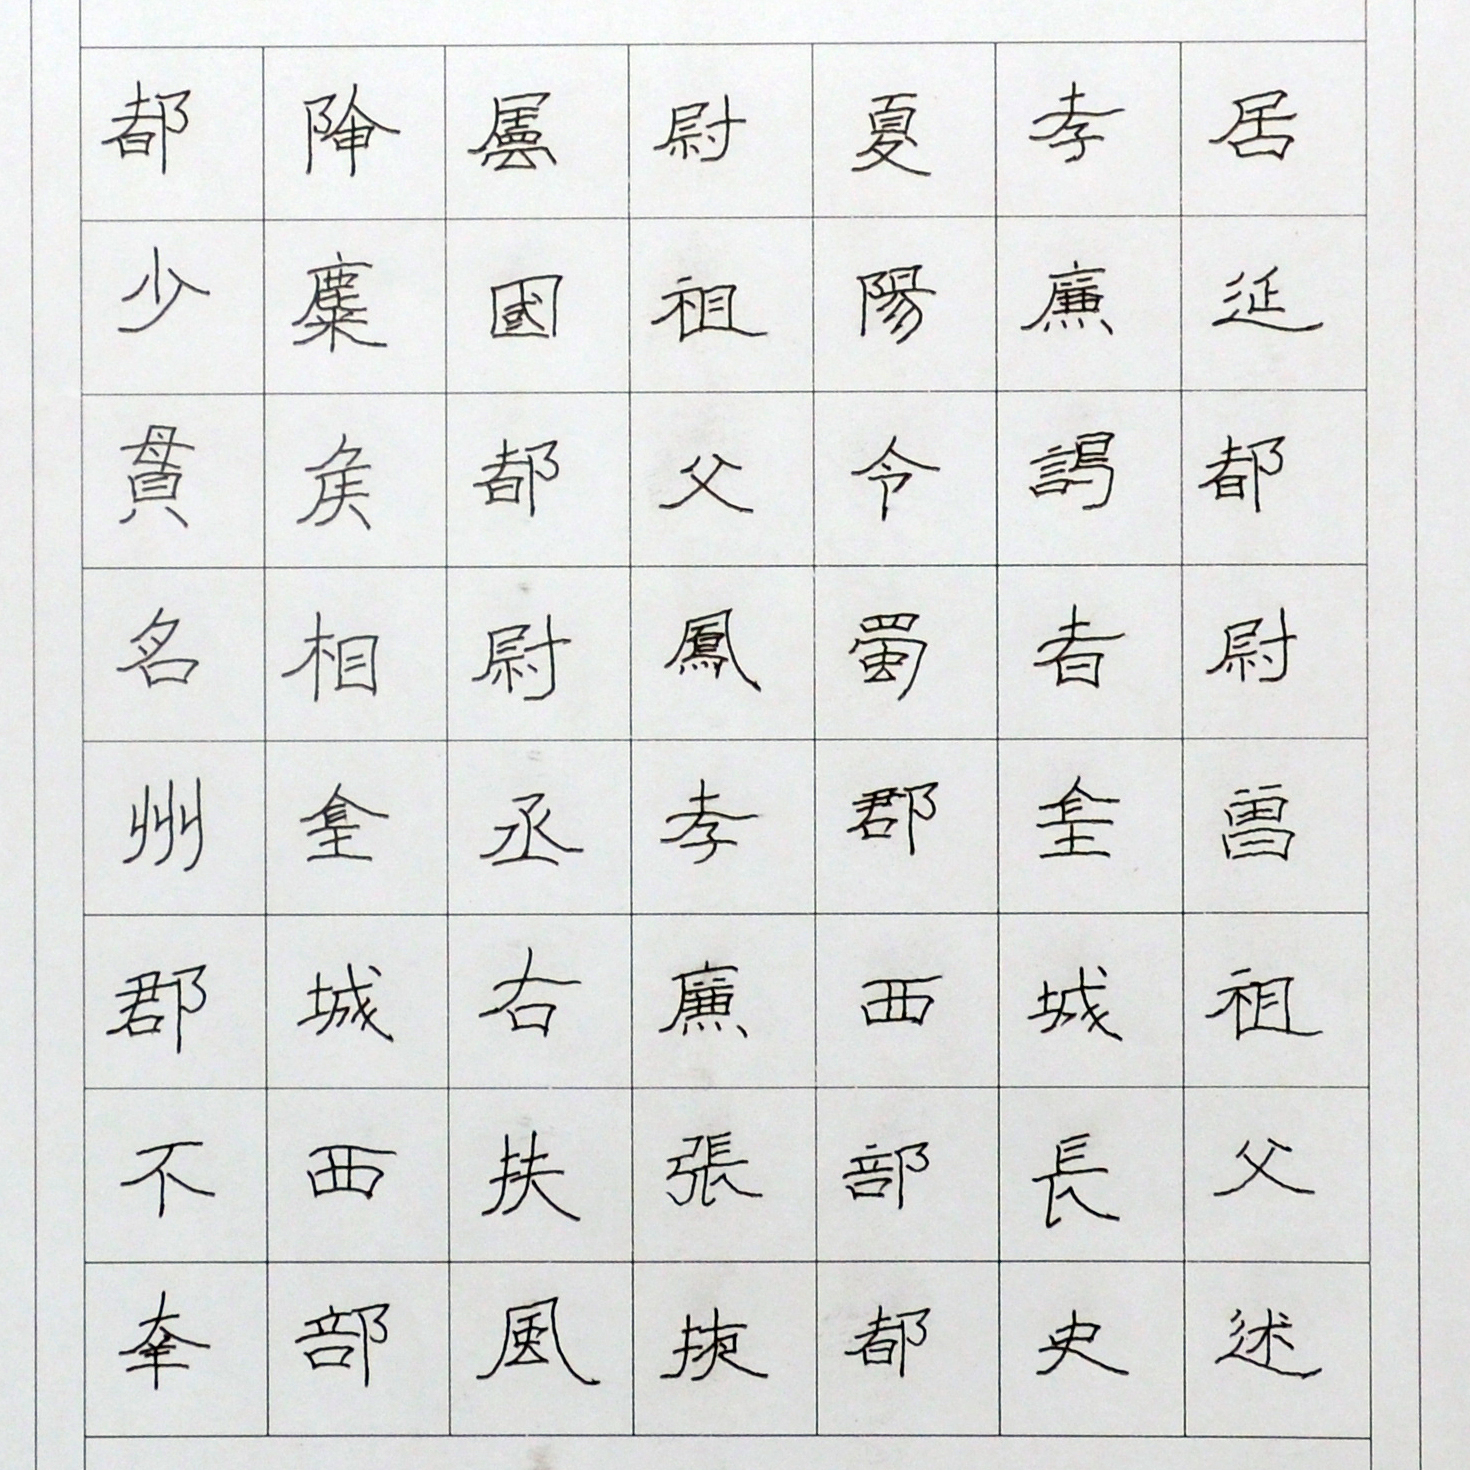 居延都尉曾祖父述
孝廉謁者金城長史
夏陽令蜀郡西部都
尉祖父鳳孝廉張掖
屬國都尉丞右扶風
隃麋侯相金城西部
都少貫名州郡不幸